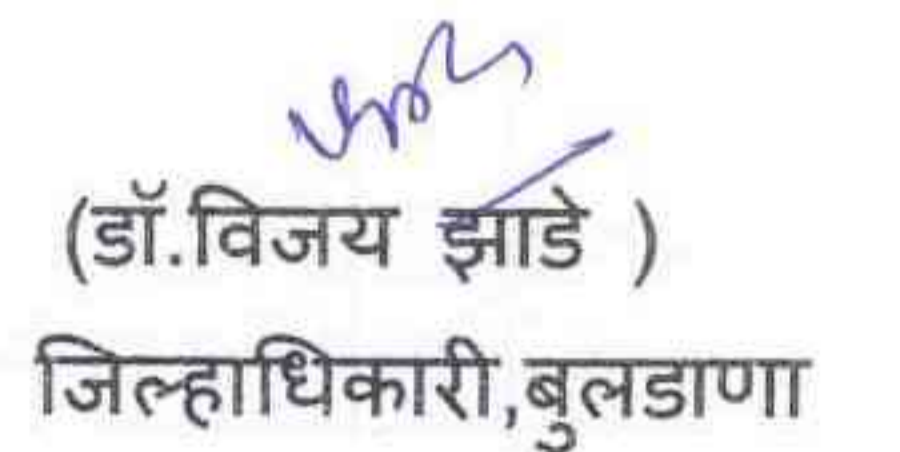 (डॉ.विजय झाडे )
जिल्हाधिकारी,बुलडाणा